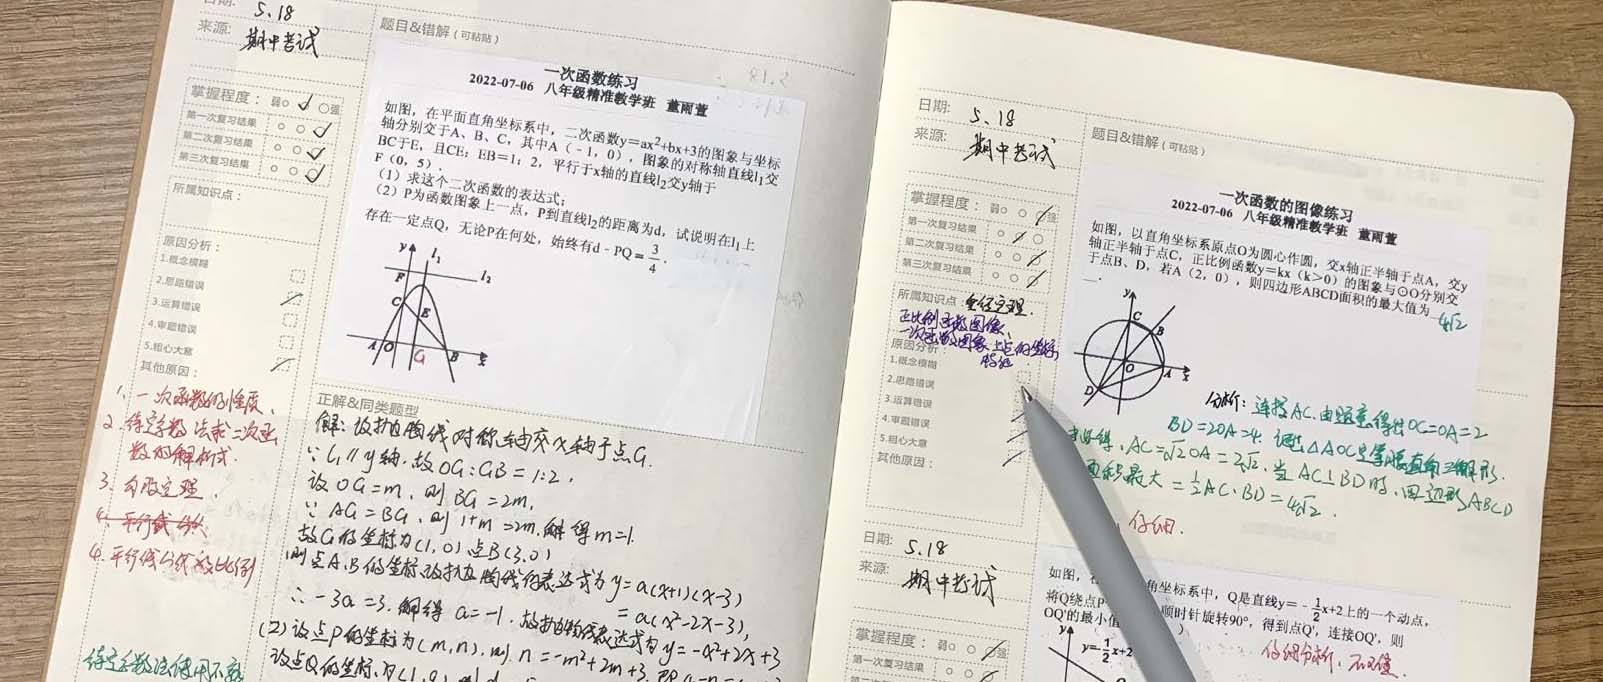 日期: 5.18
来源: 期中考试
题目&错解（可粘贴）
掌握程度： 弱 强
第一次复习结果
第二次复习结果
第三次复习结果
所属知识点：
原因分析：
1.概念模糊
2.思路错误
3.运算错误
4.审题错误
5.粗心大意
其他原因：
1. 一次函数的性质、
2. 待定系数法求二次函
数的解析式.
3. 勾股定理.
4. 平行线分线段成比例
待定系数法使用不熟
一次函数练习
2022-07-06 八年级精准教学班 董雨萱
如图，在平面直角坐标系中，二次函数y=ax²+bx+3的图象与坐标
轴分别交于A、B、C，其中A（-1，0），图象的对称轴直线l₁交
BC于E，且CE：EB=1：2，平行于x轴的直线l₂交y轴于
F（0，5）．
（1）求这个二次函数的表达式；
（2）P为函数图象上一点，P到直线l₂的距离为d，试说明在l₁上
存在一定点Q，无论P在何处，始终有d-PQ=3/4．
y l₁
F l₂
C
E
A O G B x
正解&同类题型
解：设抛物线对称轴交X轴于点G.
∵ l₁∥y轴.故OG:GB=1:2,
设OG=m,则BG=2m,
∵ AG=BG,则1+m=2m,解得m=1.
故G的坐标为(1,0) 点B(3,0)
则点A、B的坐标设抛物线的表达式为y=a(x+1)(x-3)
=a(x²-2x-3),
∴-3a=3.解得a=-1.故抛物线表达式为y=-x²+2x+3
(2)设点P的坐标为(m,n),则n=-m²+2m+3.
设点Q的坐标为(1,
日期: 5.18
来源: 期中考试
题目&错解（可粘贴）
掌握程度： 弱 强
第一次复习结果
第二次复习结果
第三次复习结果
所属知识点：垂径定理.
正比例函数图像、
一次函数图象上点的坐标
特征
原因分析：
1.概念模糊
2.思路错误
3.运算错误
4.审题错误
5.粗心大意
其他原因：
一次函数的图像练习
2022-07-06 八年级精准教学班 董雨萱
如图，以直角坐标系原点O为圆心作圆，交x轴正半轴于点A，交y
轴正半轴于点C，正比例函数y=kx（k>0）的图象与⊙O分别交
于点B、D，若A（2，0），则四边形ABCD面积的最大值为 4√2
y
C B
O A x
D
分析：连接AC.由题意得出OC=OA=2
BD=2OA=4 △AOC是等腰直角三角形.
得,AC=√2OA=2√2.当AC⊥BD时,四边形ABCD
面积最大=1/2AC·BD=4√2.
仔细.
日期: 5.18
来源: 期中考试
掌握程度： 弱 强
第一次复习结果
如图，在 角坐标系中，Q是直线y=-1/2x+2上的一个动点，
将Q绕点P 顺时针旋转90°，得到点Q'，连接OQ'，则
OQ'的最小值
y
y=-1/2x+2
仔细分析,